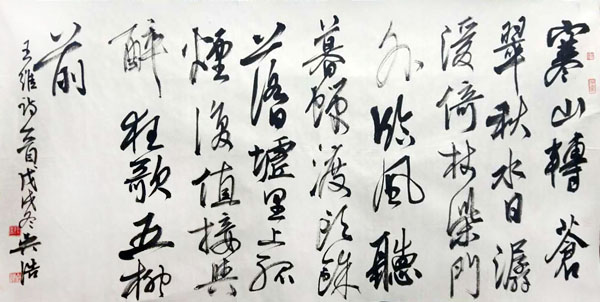 寒山轉蒼
翠秋水日潺
湲倚杖柴門
外臨風聽
暮蟬渡頭餘
落日墟里上孤
煙復值接輿
醉狂歌五柳
前
王維詩一首戊戌冬吳浩